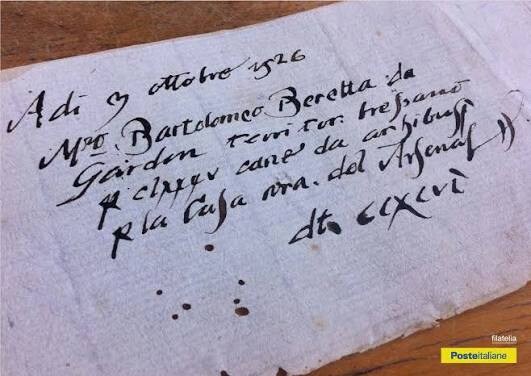 Adi 3 ottobre 1526
Mro. Bartolomeo Beretta da
Gardon territor. bressano
p clxxxv cane da archibusi
p la Casa nra. del Arsenal
dt. cclxcvi
filatelia
Posteitaliane